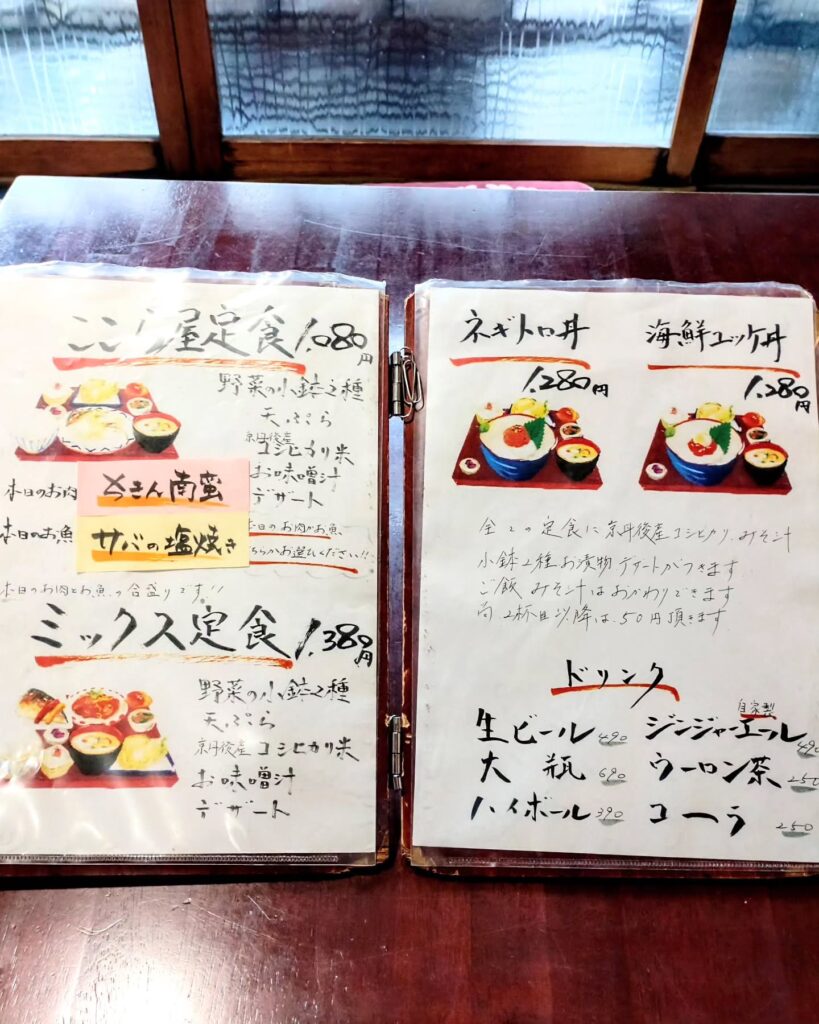 ここら屋定食 1,080円
野菜の小鉢2種
天ぷら
京丹後産
コシヒカリ米
お味噌汁
デザート
本日のお肉 チキン南蛮
本日のお魚 サバの塩焼き
本日のお肉かお魚、
どちらかお選びください!!
本日のお肉とお魚の合盛りです!!
ミックス定食 1,380円
野菜の小鉢2種
天ぷら
京丹後産 コシヒカリ米
お味噌汁
デザート
ネギトロ丼
1,280円
海鮮ユッケ丼
1,280円
全ての定食に京丹後産コシヒカリ、みそ汁
小鉢2種お漬物デザートがつきます
ご飯 みそ汁はおかわりできます
尚 2杯目以降は、50円頂きます
ドリンク
生ビール 490
大瓶 690
ハイボール 390
自家製
ジンジャーエール 490
ウーロン茶 250
コーラ 250